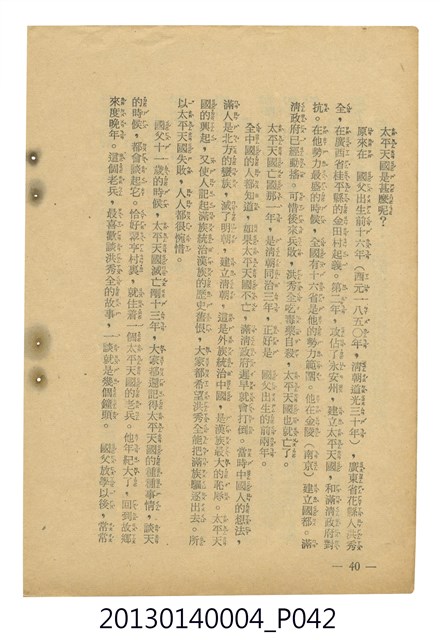 太平天國是甚麼呢？
原來在　國父出生前十六年（西元一八五○年，清朝道光三十年），廣東省花縣人洪秀
全，在廣西省桂平縣的金田村起義。第二年，攻佔了永安州，建立太平天國，和滿清政府對
抗。在他勢力最盛的時候，全國有十六省是他的勢力範圍。他在金陵（南京）建立國都。滿
清政府已經動搖。可惜後來兵敗，洪秀全吃毒藥自殺，太平天國也就亡了。
太平天國亡國那一年，是清朝同治三年，正好是　國父出生的前兩年。
全中國的人都知道，如果太平天國不亡，滿清政府遲早就會打倒。當時中國人的想法，
滿人是北方的蠻族，滅了明朝，建立清朝，這是外族統治中國，是漢族最大的恥辱。太平天
國的興起，又使人記起滿族統治漢族的歷史舊恨，大家都希望洪秀全能把滿族驅逐出去。所
以太平天國失敗，人人都很惋惜。
國父十一歲的時候，太平天國滅亡剛十三年，大家都還記得太平天國的種種事情，談天
的時候，都會談起它。恰好翠亨村裏，就住着一個太平天國的老兵。他年紀大了，回到故鄉
來度晚年。這個老兵，最喜歡談洪秀全的故事，一談就是幾個鐘頭。　國父放學以後，常常
— 40 —
20130140004_P042